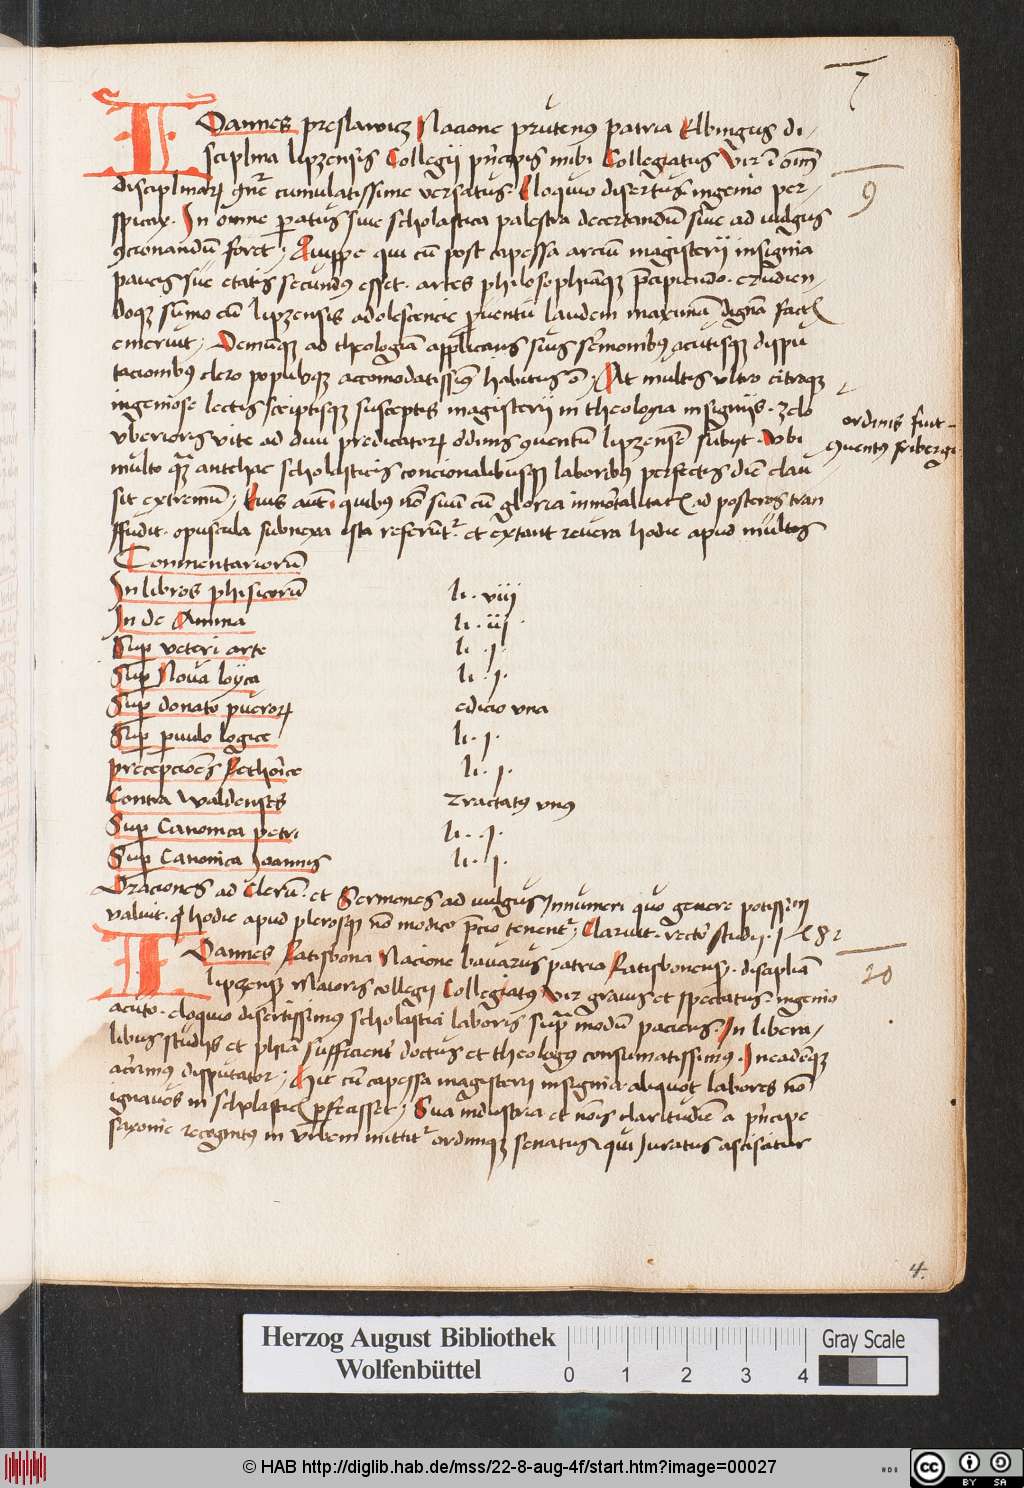 7
IOannes preslawicz Nacione prutenus patria Elbingus di-
sciplina lipzensis Collegii pricipis mihi Collegiatus Vir i oim
disciplinar gne cumulatissime versatus. Eloquio disertus ingenio per-
spicax. In omne paratus siue scholastica palestra decertandu siue ad uulgus
9cionandu foret; Quippe qui cu post capessa arcium magisterii insignia
paucis sue etatis secundus esset. artes philosophiaqz pcipiendo. erudien
doqz sumo cu lipzensis adolescencie puentu laudem maxima digna
emeruit; Demuqz ad theologia applicatus suis sermonibus acutisqz dispu
tacionibus clero populoqz accomodatissimus habitus e; At multis ultro citraqz
ingeniose lectis scriptisqz susceptis magisterii in theologia insigniis. zelo
uberioris uite ad diui predicator ordinis 9uentu lipzense subiit. Vbi
multo qz antehac scholasticis concionalibusqz laboribus perfectis die clau
sit extremum; Eius aut quibus no sui cu gloria inmortalitat ad posteros tran
ffudit. opuscula subnexa ista referut. et extant reuera hodie apud multos
9
ordinis fuit
9uentus fribergi
Commentariorum
In libros phisicorum li. viij
In de Anima li. iij.
Sup veteri arte li. j.
Sup Noua loyca li. j.
Sup donato pueror edicio vna
Sup paruulo logice li. j.
precepciones Rethorice li. j.
Contra Waldenses Tractatus vnus
Sup Canonica petri li. j.
Sup Canonica Joannis li. j.
Oraciones ad Clerum. et Sermones ad uulgus Innumeri quo genere potissim
ualuit. q hodie apud plerosqz no modico pcio tenent; Claruit. recto studii.
10
IOannes Ratisbona Nacione bauarus patria Ratisbonensis. disciplia
lipzensis Maioris collegii Collegiatus Vir grauis et spectatus. ingenio
acuto. eloquio disertissimus scholastici laboris supra modu paciens. In libera-
libus studiis et phia sufficient doctus et theologus consumatissimus. In eadeqz
acrimus disputator; Hic cu capessa magisterii insignia aliquot labores no
ignauos in scholastic pfecisset; Sua industria et nois claritudine a pricipe
saxonie recognitus in vrbem mittit ordinqz senatus qui Juratus asciscitur
4.
Herzog August Bibliothek
Wolfenbüttel
0 1 2 3 4
Gray Scale
© HAB http://diglib.hab.de/mss/22-8-aug-4f/start.htm?image=00027
HAB
CC BY SA